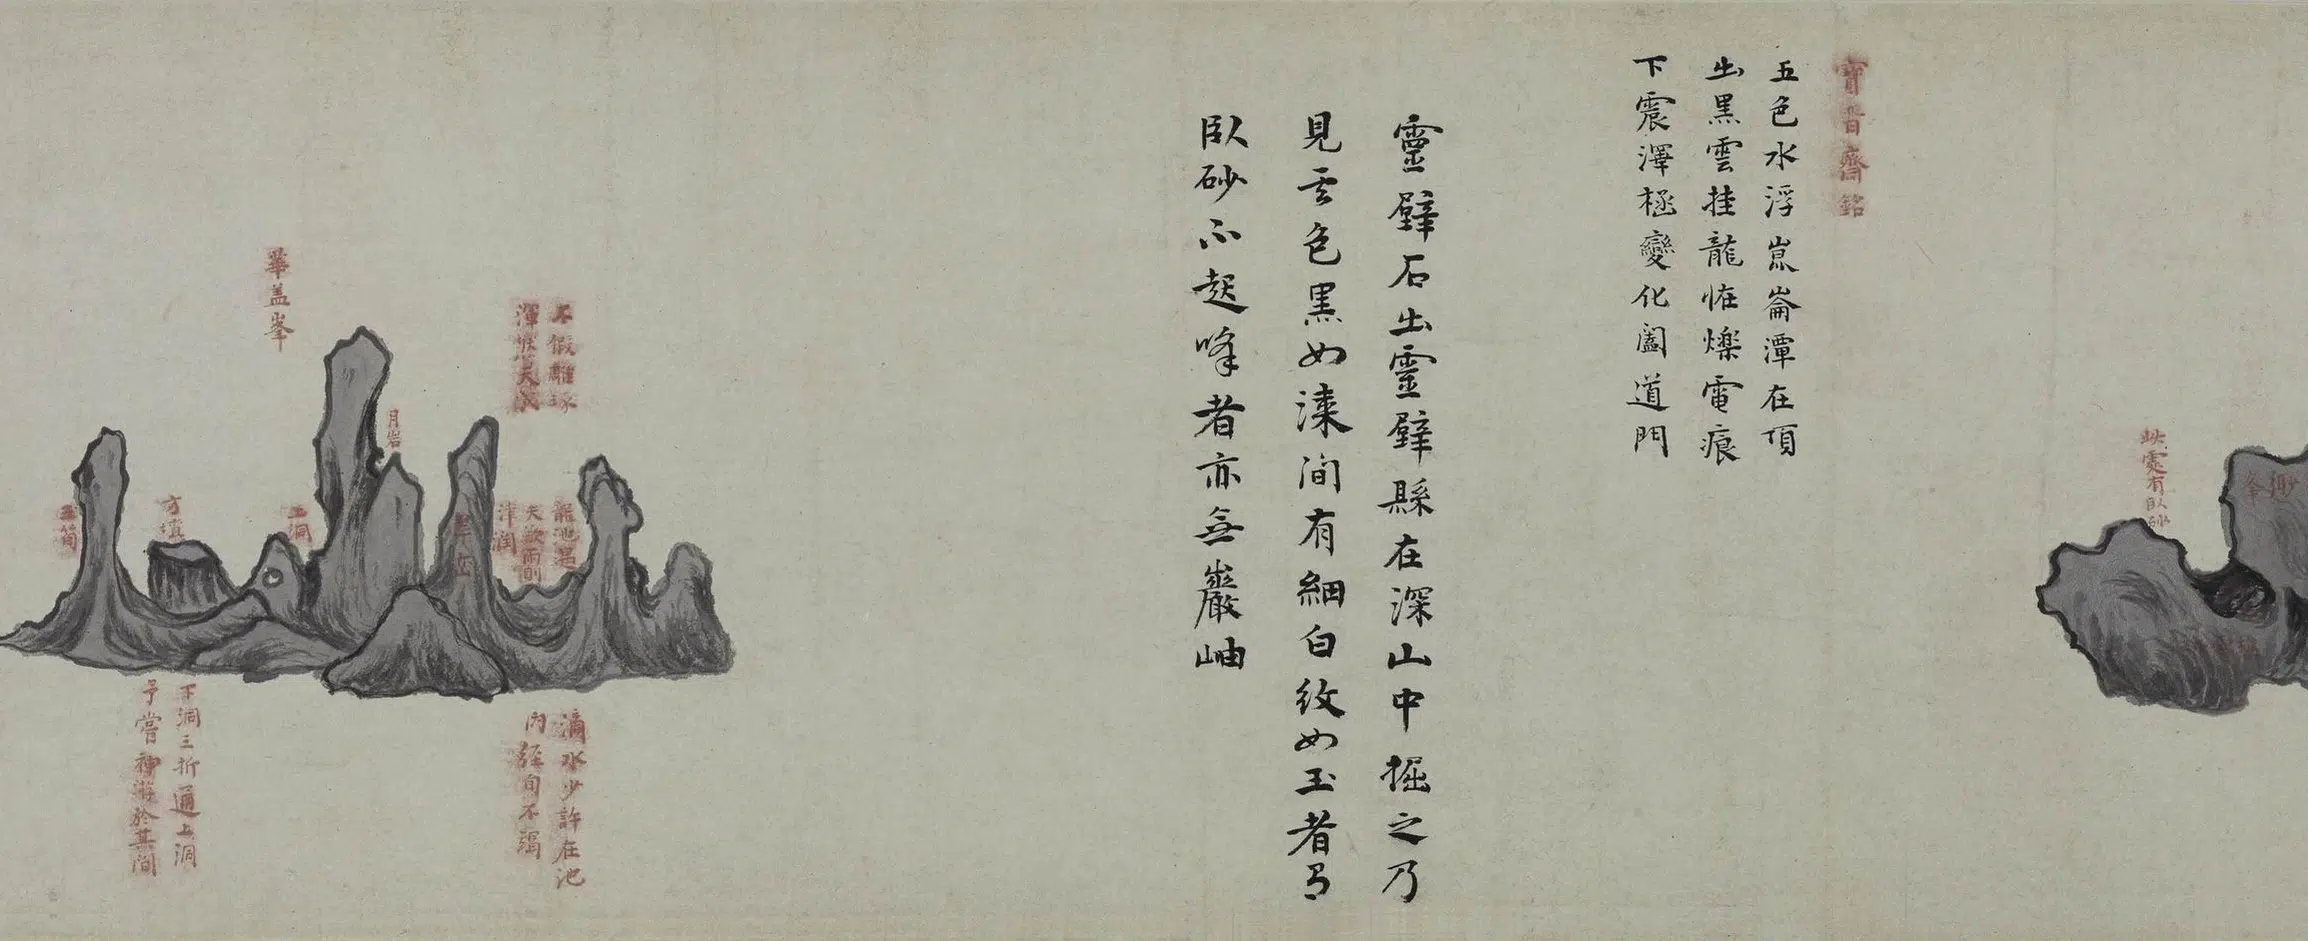 此處有臥砂
寶晋齋銘
五色水浮崑崙潭在頂
出黑雲挂龍恠爍電痕
下震澤極變化闔道門
靈壁石出靈壁縣在深山中掘之乃
見其色黑如漆間有細白紋如玉者有
臥砂不起峰者亦無巖岫
不假雕琢
渾然天成
龍池遇
天欲雨則
津潤
月岩
華盖峯
上洞
方壇
玉筍
滴水少許在池
內經旬不竭
下洞三折通上洞
予嘗神游於其間